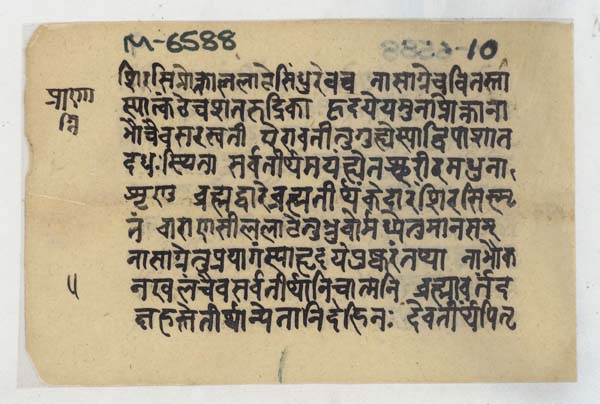 M-6588
प्राणा
ग्नि
५
शिरसिप्रोक्ताललाटेसिंधुरेवच नासाग्रेचवितस्ता
स्यात्कंठेचशतरुद्रिका हृदयेयमुनाप्रोक्ताना
भौचैवसरस्वती येरावतीतुगुह्येस्याद्विपाशात
दधःस्थिता सर्वतीर्थमयह्येतच्छरीरमधुना
शृणु ब्रह्मद्वारेब्रह्मतीर्थंकेदारंशिरसिस्मृ
तं वाराणसीललाटेतुभ्रुवोर्मध्येतुमानसम्
नासाग्रेतुप्रयागंस्याद्हृदयेपुष्करंतथा नाभौक
नखलचैवसर्वतीर्थानिचात्मनि ब्रह्मावर्तद
क्षहस्तेतीर्थान्येतानिदेहिनः देवतीर्थंपितृ